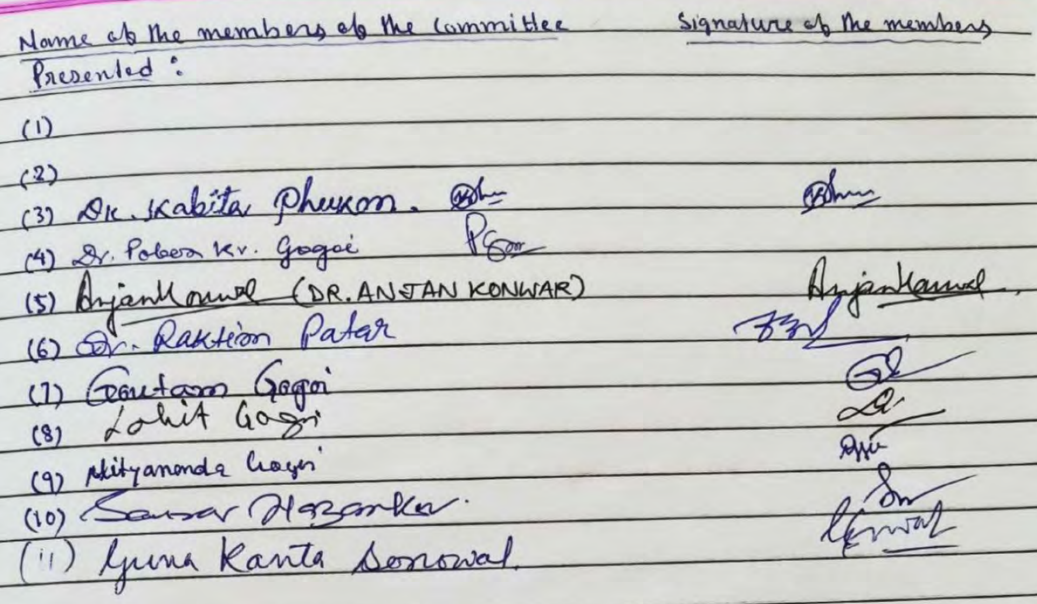 Name of the members of the Committee Signature of the members
Presented :
(1)
(2)
(3) Dr. Kabita Phukon.
(4) Dr. Poben Kr. Gogoi
(5) Anjan Konwar (DR. ANJAN KONWAR) Anjan Konwar
(6) Dr. Raktim Patar
(7) Gautam Gogoi
(8) Lohit Gogoi
(9) Nityananda Gogoi
(10) Hazarika
(11) Guna Kanta Sonowal.